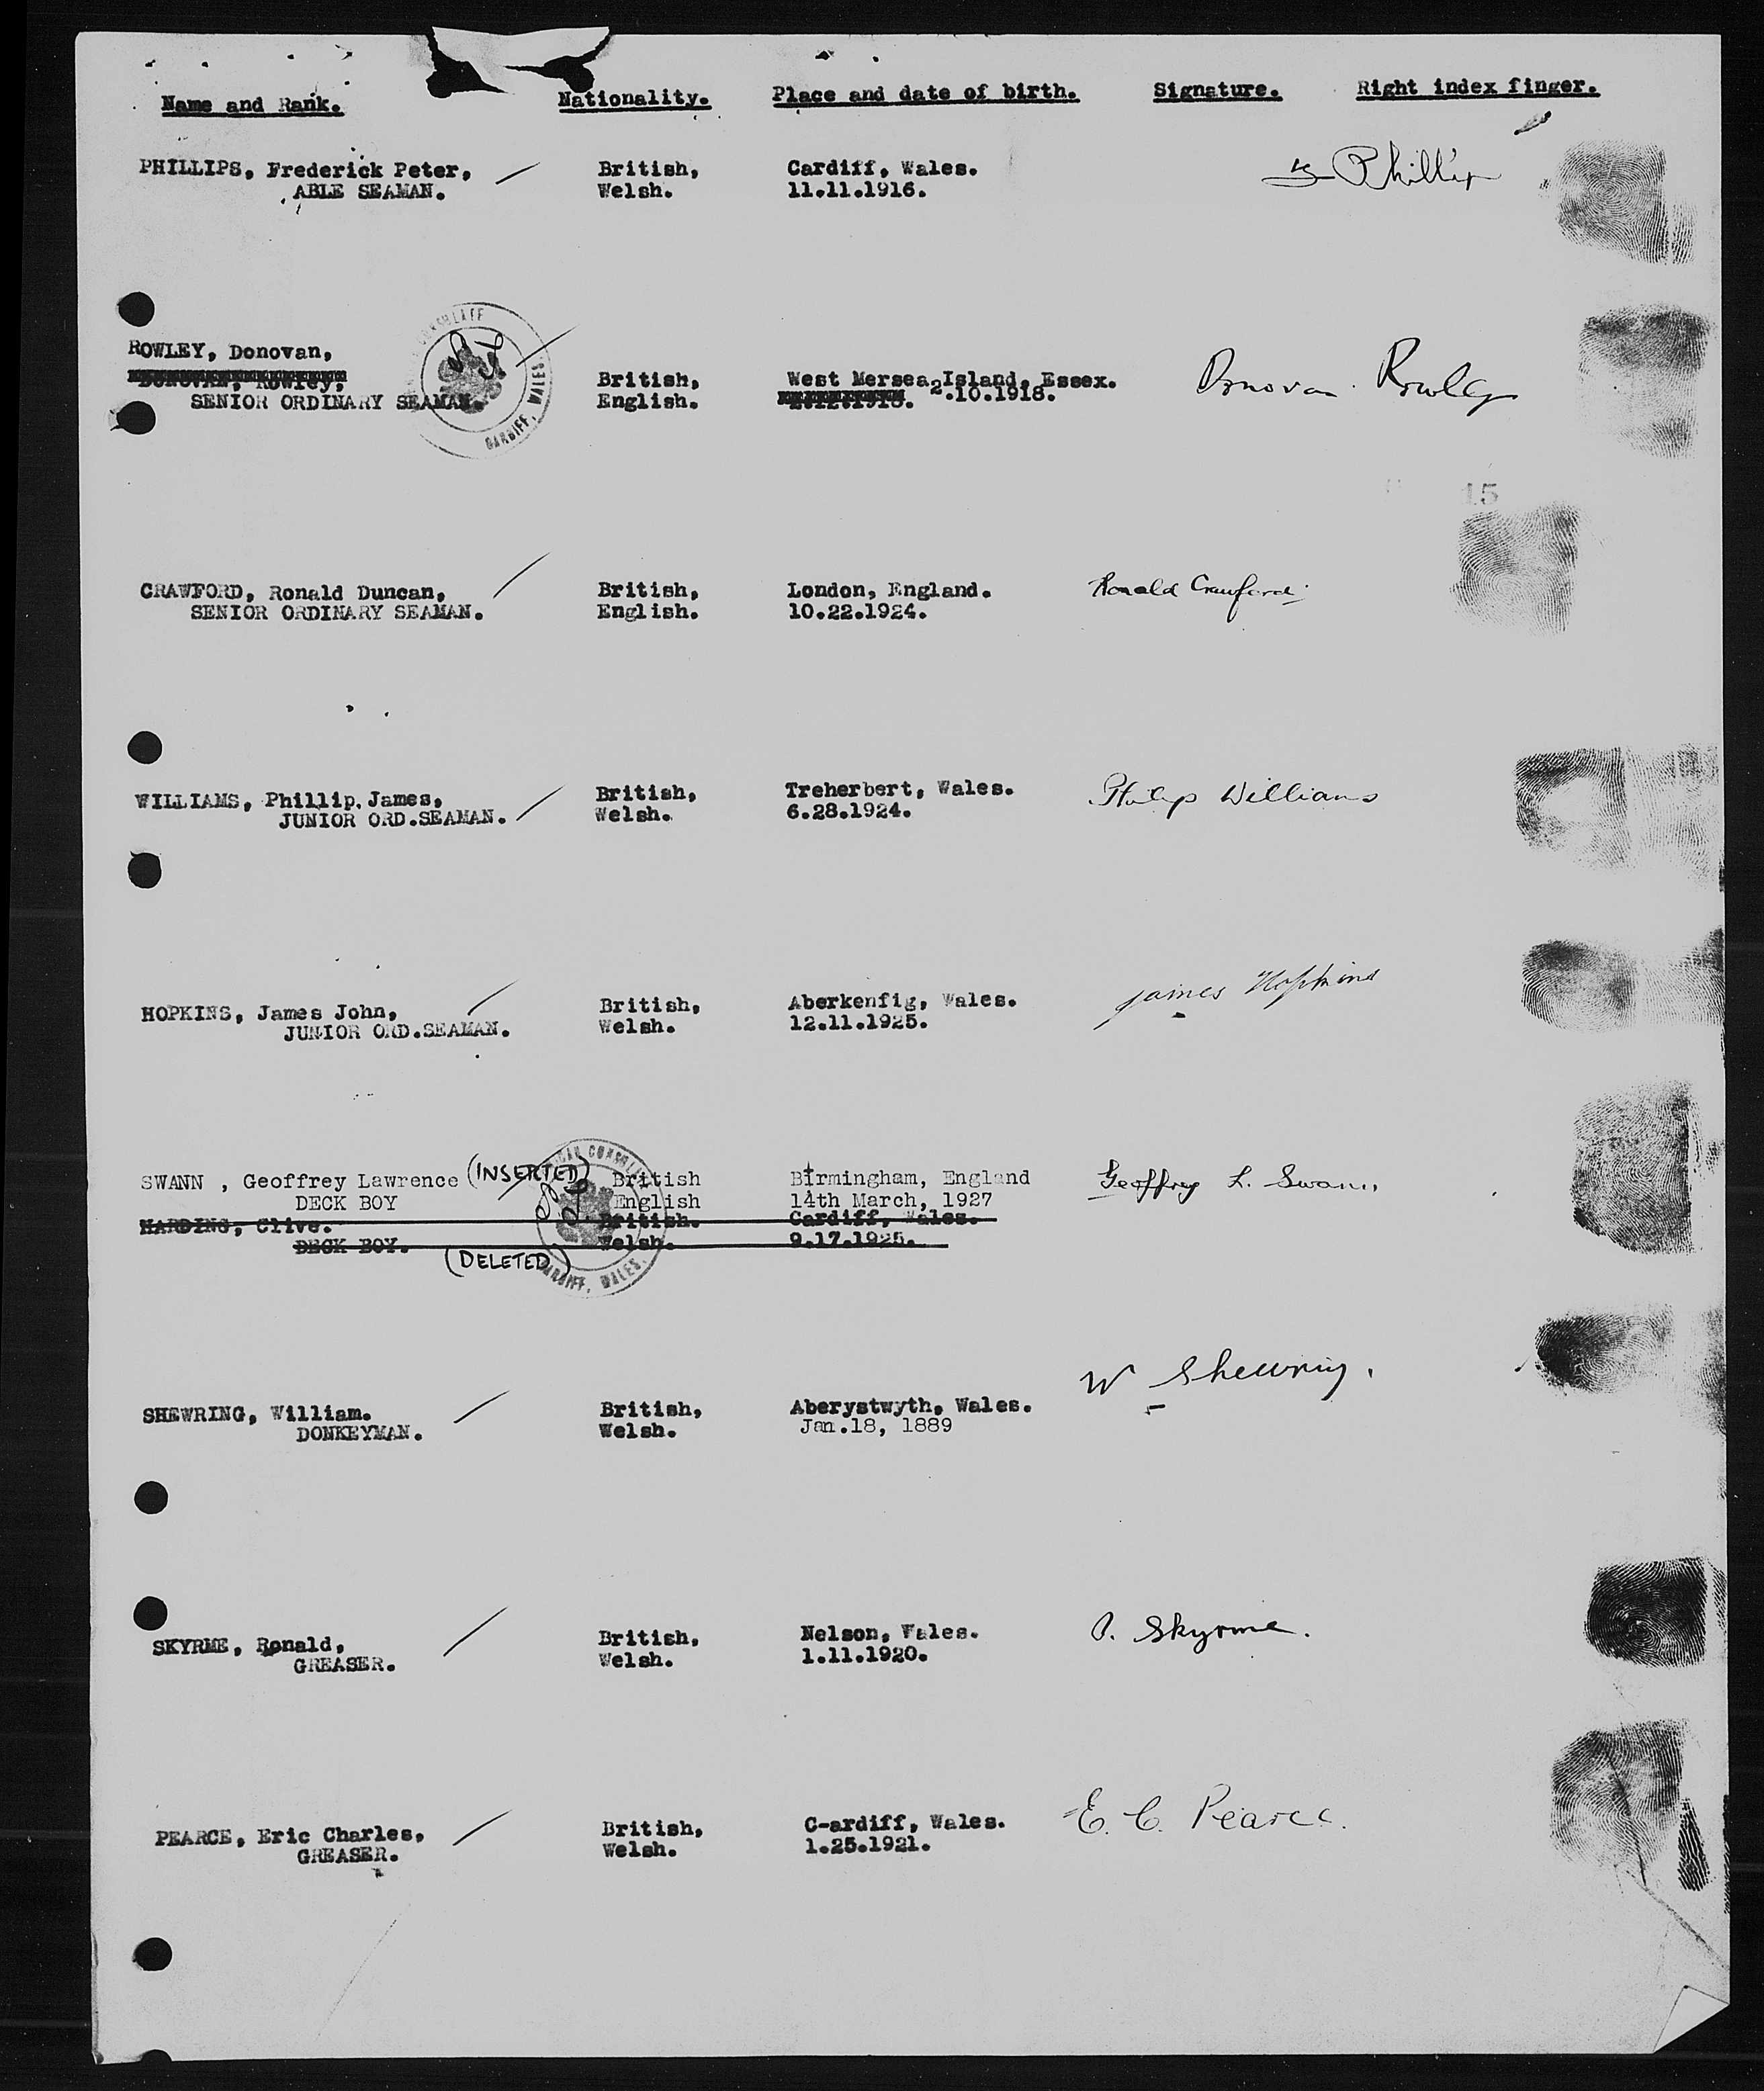 Name and Rank. Nationality. Place and date of birth. Signature. Right index finger.
PHILLIPS, Frederick Peter, British, Cardiff, Wales. Phillips
ABLE SEAMAN. Welsh. 11.11.1916.
ROWLEY, Donovan,
DONOVAN, Rowley, British, West Mersea Island, Essex. Donovan Rowley
SENIOR ORDINARY SEAMAN. English. 2.10.1918.
CARDIFF, WALES.
15
CRAWFORD, Ronald Duncan, British, London, England. Ronald Crawford
SENIOR ORDINARY SEAMAN. English. 10.22.1924.
WILLIAMS, Phillip James, British, Treherbert, Wales. Philip Williams
JUNIOR ORD.SEAMAN. Welsh. 6.28.1924.
HOPKINS, James John, British, Aberkenfig, Wales. James Hopkins
JUNIOR ORD.SEAMAN. Welsh. 12.11.1925.
SWANN , Geoffrey Lawrence (INSERTED) British Birmingham, England Geoffrey L. Swann
DECK BOY English 14th March, 1927
HARDING, Clive. British. Cardiff, Wales.
DECK BOY. (DELETED) Welsh. 9.17.1925.
CARDIFF, WALES.
SHEWRING, William. British, Aberystwyth, Wales. W Shewring.
DONKEYMAN. Welsh. Jan.18, 1889
SKYRME, Ronald, British, Nelson, Wales. Skyrme.
GREASER. Welsh. 1.11.1920.
PEARCE, Eric Charles, British, C-ardiff, Wales. E. C. Pearce.
GREASER. Welsh. 1.25.1921.